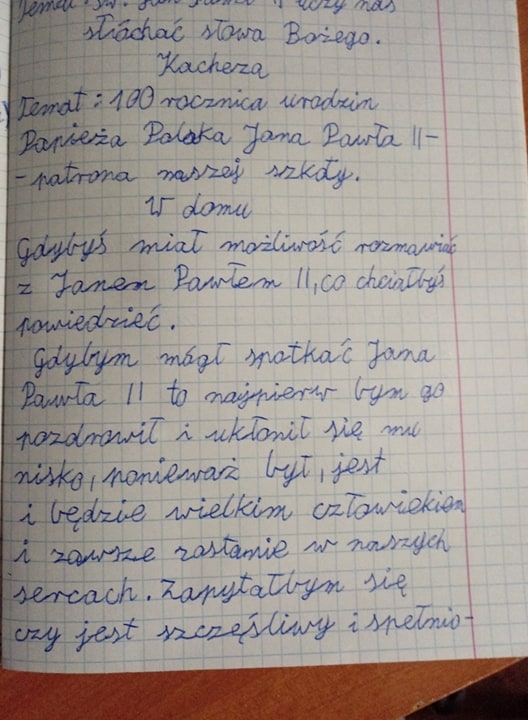 Temat: Św. Jan Paweł II uczy nas
słuchać słowa Bożego.
Kacheza
Temat: 100 rocznica urodzin
Papieża Polaka Jana Pawła II-
-patrona naszej szkoły.
W domu
Gdybyś miał możliwość rozmawiać
z Janem Pawłem II, co chciałbyś
powiedzieć.
Gdybym mógł spotkać Jana
Pawła II to najpierw bym go
pozdrowił i ukłonił się mu
nisko, ponieważ był, jest
i będzie wielkim człowiekiem
i zawsze zostanie w naszych
sercach. Zapytałbym się
czy jest szczęśliwy i spełnio-